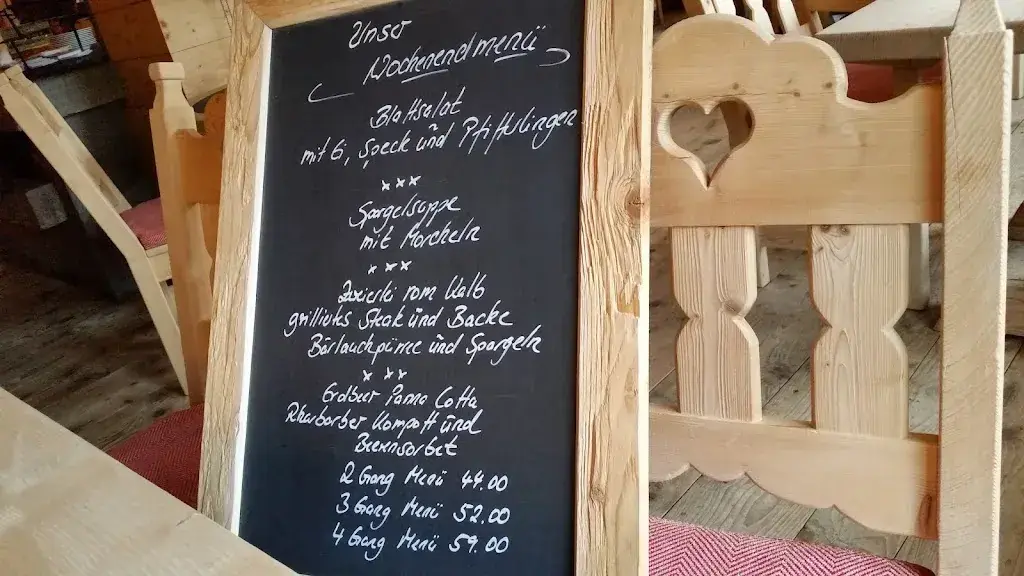 Unser
Wochenendmenü
Blattsalat
mit Ei, Speck und Pfifferlingen
xxx
Spargelsuppe
mit Morcheln
xxx
Zweierlei vom Kalb
grilliertes Steak und Backe
Bärlauchpüree und Spargeln
xxx
Panna Cotta
Rhabarber Kompott und
Beerensorbet
2 Gang Menü 44.00
3 Gang Menü 52.00
4 Gang Menü 59.00